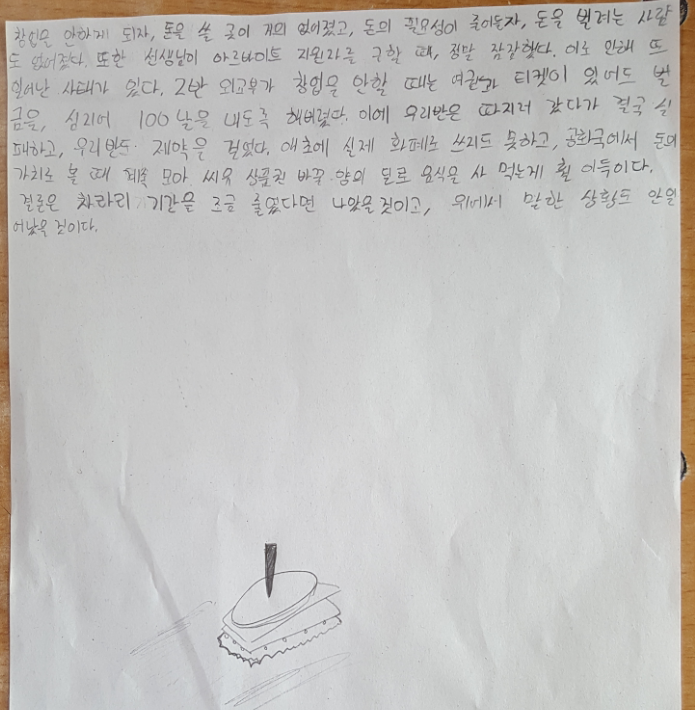 창업을 안하게 되자, 돈을 쓸 곳이 거의 없어졌고, 돈의 필요성이 줄어들자, 돈을 벌려는 사람
도 없어졌다. 또한 선생님이 아르바이트 지원자를 구할 때, 정말 잠잠했다. 이로 인해 또
일어난 사태가 있다. 2반 외교부가 창업을 안할 때는 여권과 티켓이 있어도 벌
금을, 심리어 100날을 내도록 해버렸다. 이에 우리반은 따지러 갔다가 결국 실
패하고, 우리반도 제약을 걸었다. 애초에 실제 화폐로 쓰지도 못하고, 공화국에서 돈의
가치로 볼 때 계속 모아 씨유 상품권 바꿀 양의 돈로 음식을 사 먹는게 훨 이득이다.
결론은 차라리 기간을 조금 줄였다면 나았을 것이고, 위에서 말한 상황도 안일
어났을 것이다.